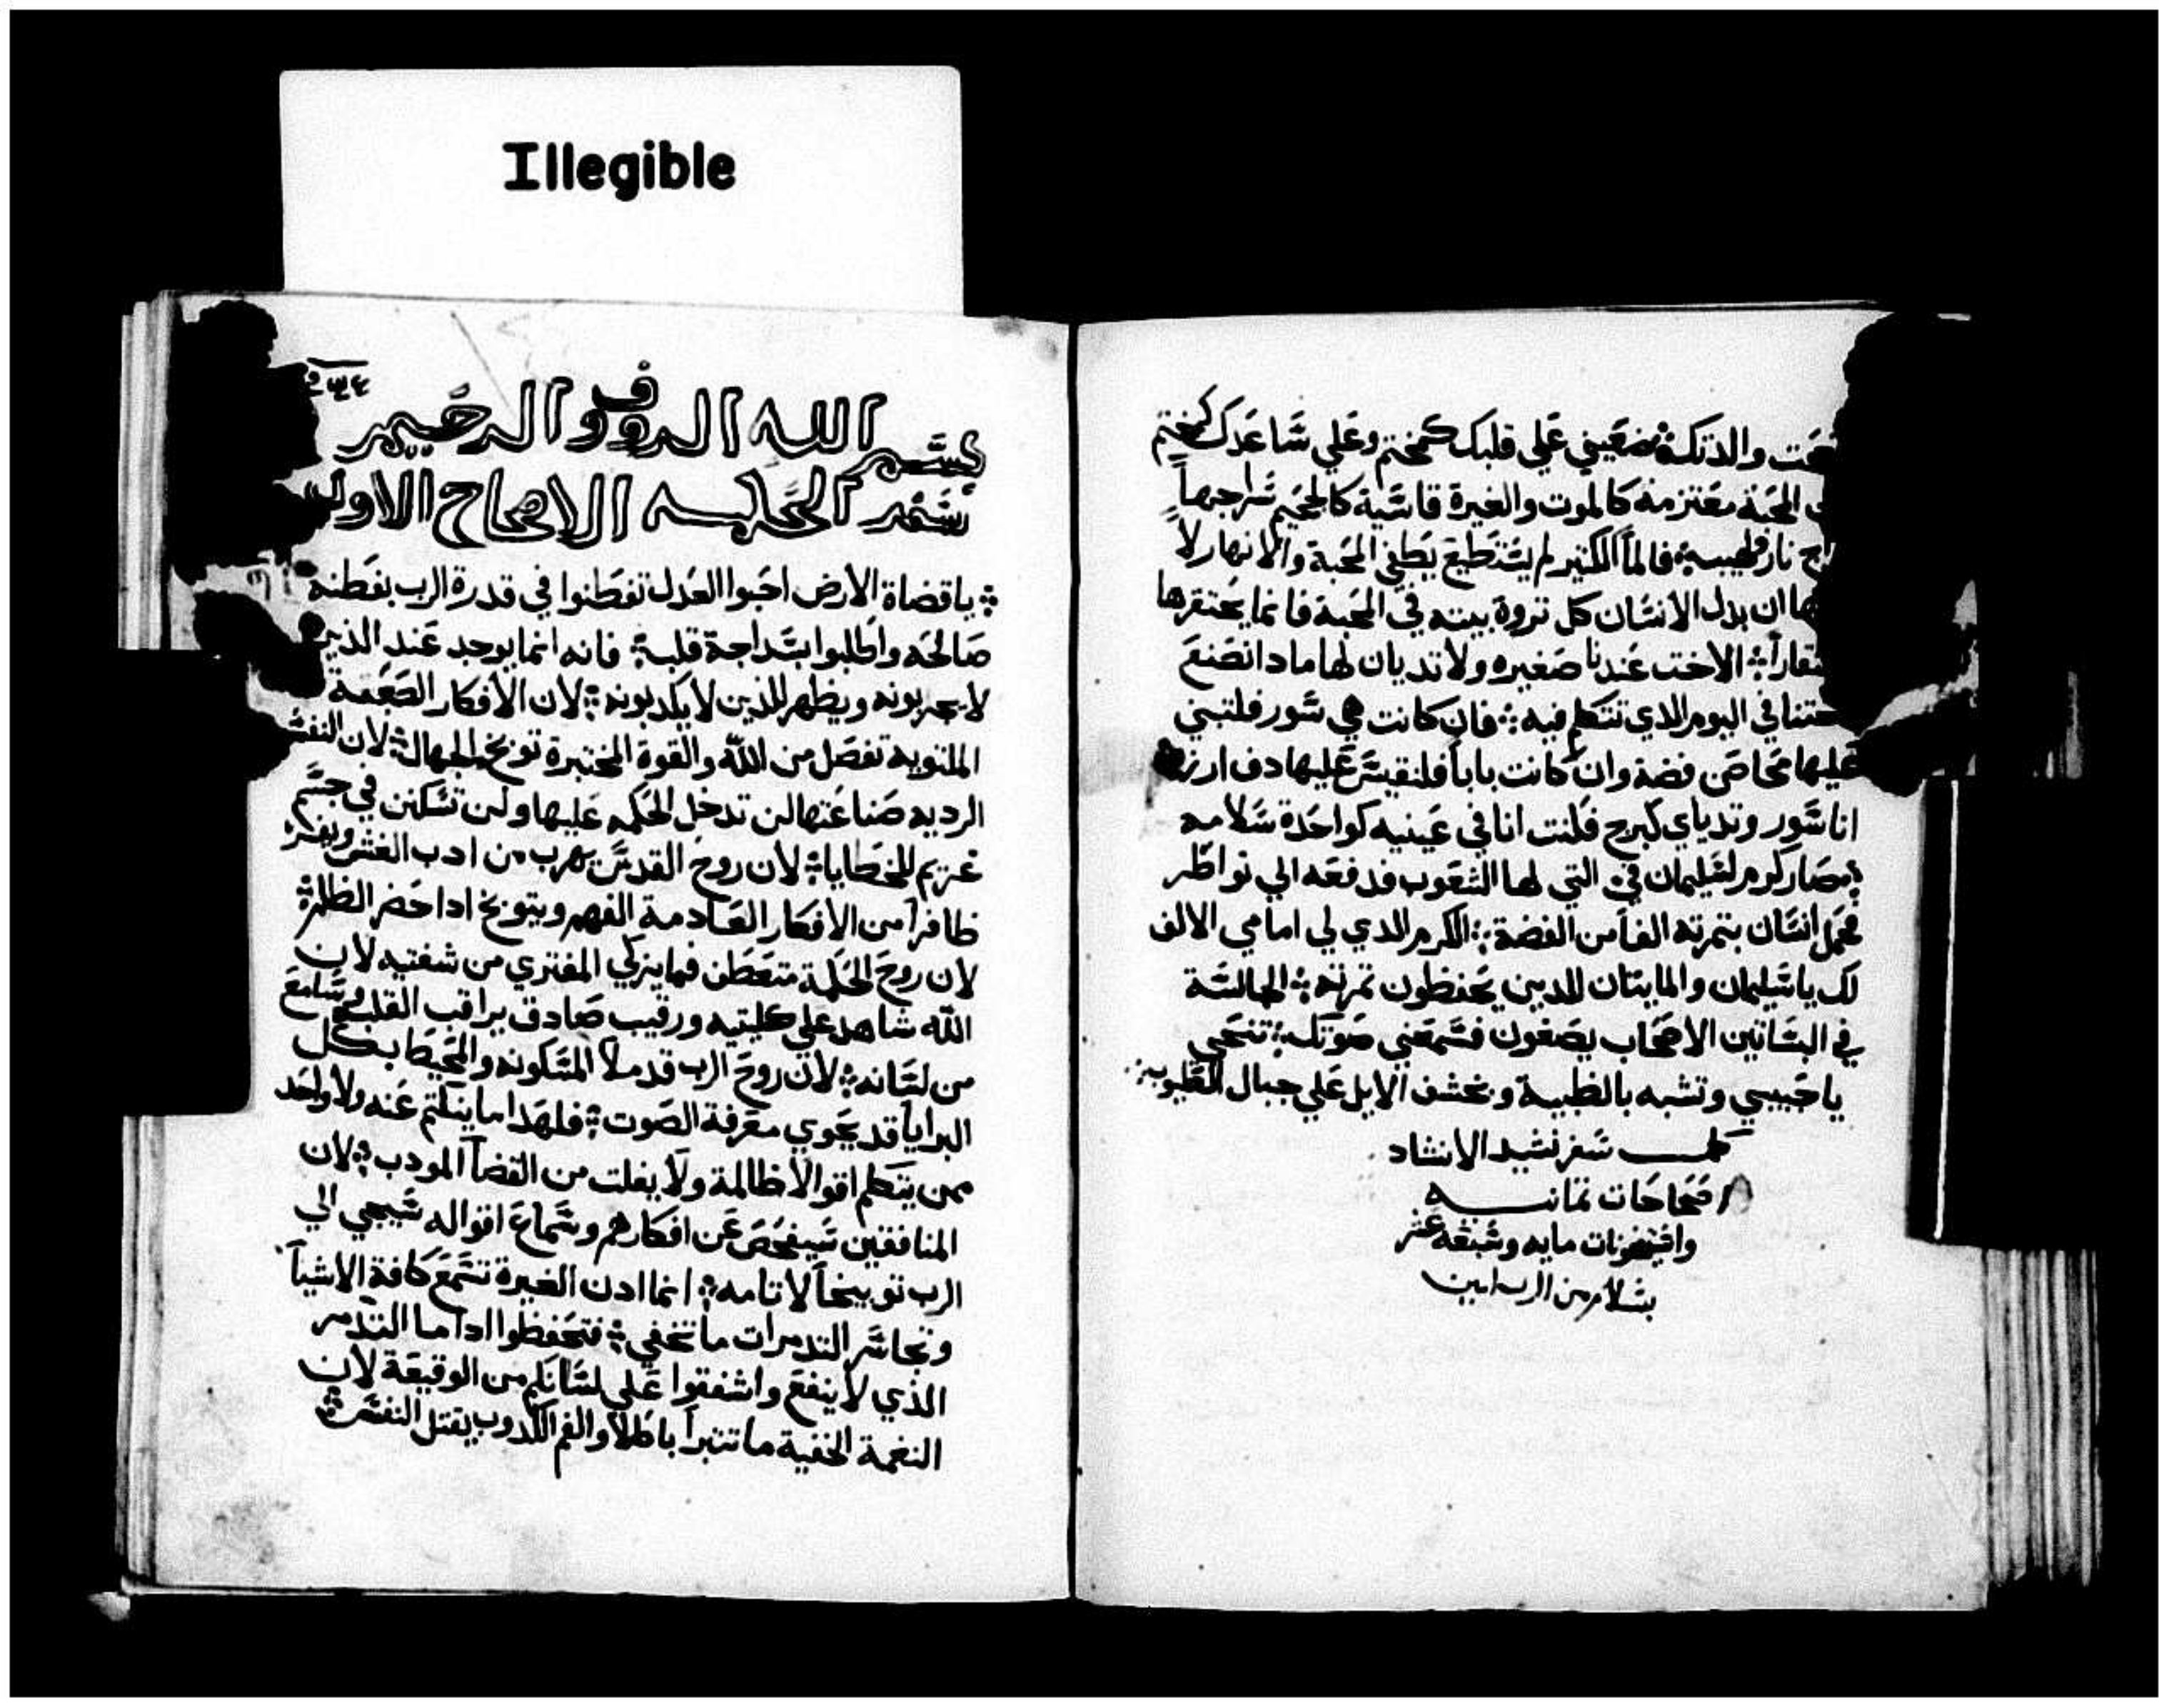 Illegible
والدتك ÷ ضعيني علي قلبك كمختم وعلي ساعدك كمختم
المحبة معتزمه كالموت والغيرة قاسية كالجحيم سراجها
نار ولهيب ÷ فالمآ الكثير لم يستطيع يطفي المحبة والانهار لا
ان بدل الانسان كل تروة بيته في المحبة فانما يحتقرها
÷ الاخت عندنا صغيره ولا تديان لها مادا نصنع
في اليوم الدي نتكلم فيه ÷ فان كانت هي سور فلنبني
عليها محاص فضة وان كانت باباً فلنقيس عليها دف ارز
انا سور وتدياي كبرج فلنت انا في عينيه كواحدة سلامه
÷ صار كرم لسليمان في التي لها الشعوب فدفعه الي نواطر
محمل انسان بتمرته الفاً من الفضة ÷ الكرم الدي لي امامي الالف
لك يا سليمان والمايتان للدين يحفظون تمرته ÷ الجالسة
في البساتين الاصحاب يصغون فسمعني صوتك ÷ تنحي
يا حبيبي وتشبه بالظبية وبخشف الايل علي جبال الطيوب
كمل سفر نشيد الانشاد
اصحاحات تمانيه
مايه وسبعه عشر
بسلام من الرب امين
٢٣٤
بسم الله الروف الرحيم
سفر الحكمه الاصحاح الاول
÷ يا قضاة الارض احبوا العدل تفطنوا في قدرة الرب بفطنه
صالحه واطلبوا بسداجة قلب ÷ فانه انما يوجد عند الدين
لا يجربونه ويظهر للذين لا يكدبونه ÷ لان الافكار الصعبة
الملتويه تفصل من الله والقوة المختبرة توبخ الجهال ÷ لان النفس
الرديه صناعتها لن تدخل الحكمه عليها ولن تسكن في جسم
غريم للخطايا ÷ لان روح القدس يهرب من ادب الغش ويفر
ظافراً من الافكار العادمة الفهم ويتوبخ ادا حضر الظلم ÷
لان روح الحكمة متعطن فما يزكي المفتري من شفتيه لان
الله شاهد علي كليتيه ورقيب صادق يراقب القلب وسامع
من لسانه ÷ لان روح الرب قد ملا المسكونه والمحيط بكل
البرايا قد يحوي معرفة الصوت ÷ فلهدا ما ينكتم عنه ولا واحد
ممن يتكلم اقوالا ظالمة ولا يفلت من القضآ المودب ÷ لان
المنافقين سيفحص عن افكارهم وسماع اقواله سيجي الي
الرب توبيخاً لاتامه ÷ انما ادن الغيرة تسمع كافة الاشيآ
التدمرات ما تختفي ÷ فتحفظوا ادا ما التدمر
الذي لا ينفع واشفقوا علي لسانكم من الوقيعة لان
النغمة الخفية ما تتبرا باطلا والفم الكدوب يقتل النفس ÷